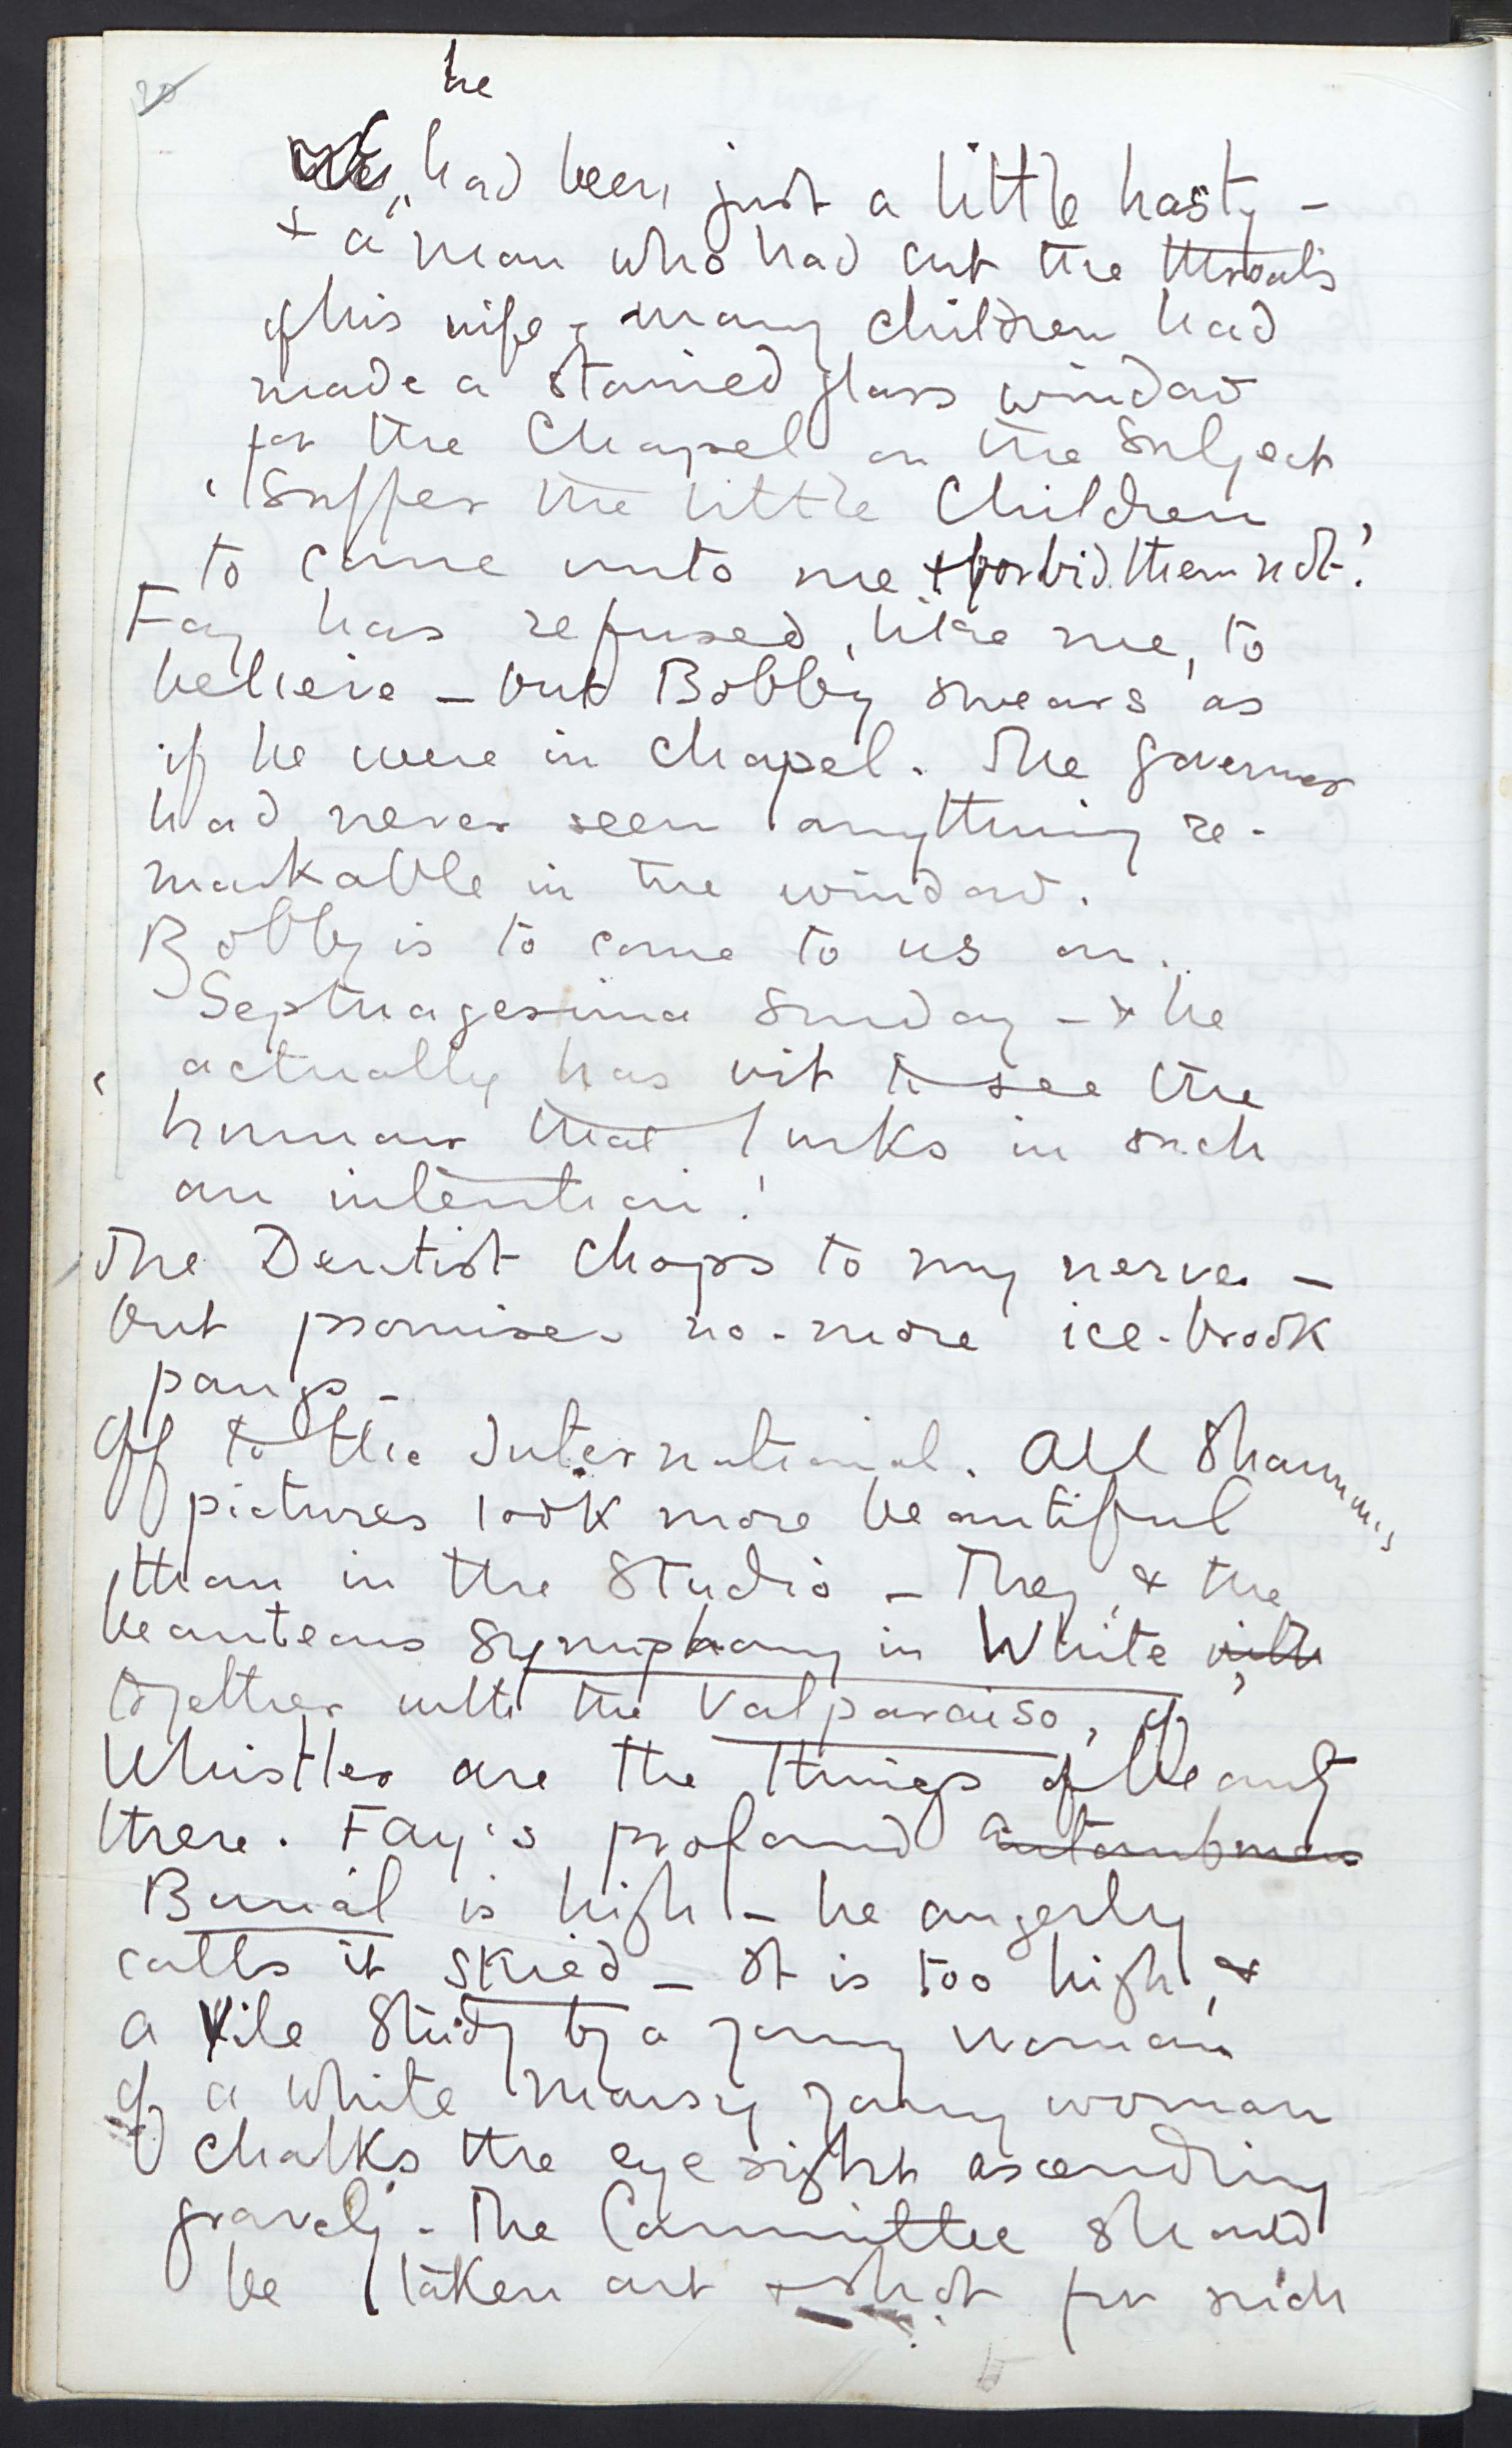 20
he
had been just a little hasty –
+ a man who had cut the throats
of his wife & many children had
made a stained glass window
for the Chapel on the subject
'Suffer the little Children
to come unto me & forbid them not.'
Fay has refused, like me, to
believe – but Bobby swears as
if he were in chapel. The governor
had never seen anything re-
markable in the window.
Bobby is to come to us on
Septuagesima Sunday – & he
actually has wit to see the
humour that lurks in such
an intention!
The Dentist chops to my nerve –
but promises no-more ice-brook
pangs –
Off to the International. All Shannon's
pictures look more beautiful
than in the Studio – They, & the
beauteous Symphony in White with
together with the Valparaiso, of
Whistler are the things of beauty
there. Fay's profound
Burial is high – he angerly
calls it skied – It is too high, &
a vile Study by a young woman
of a white young woman
chalks the eyesight ascending
gravely. The Committee should
be taken out & shot for such